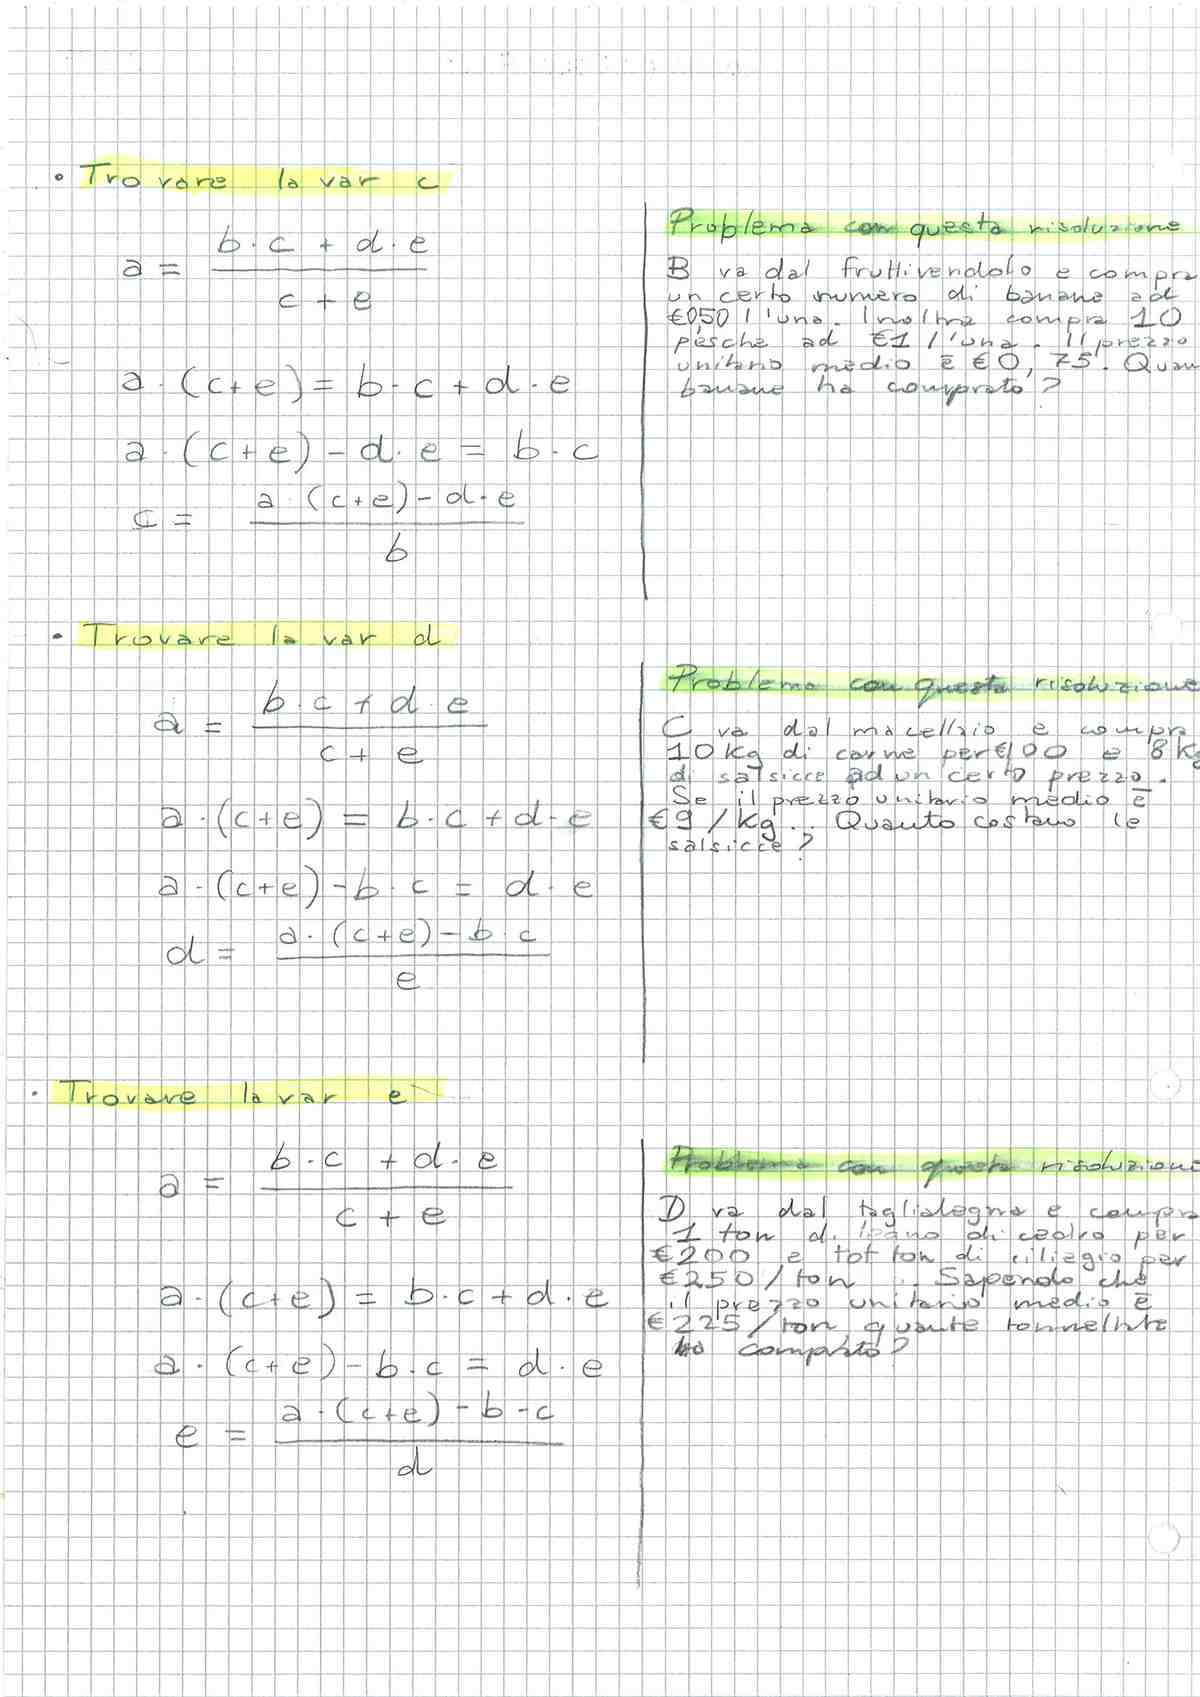 • Trovare la var c
a = (b·c + d·e) / (c + e)
a·(c+e) = b·c + d·e
a·(c+e) - d·e = b·c
c = (a·(c+e) - d·e) / b
Problema con questa risoluzione
B va dal fruttivendolo e compra
un certo numero di banane ad
€0,50 l'una. Inoltre compra 10
pesche ad €1 l'una. Il prezzo
unitario medio è €0,75. Quan
banane ha comprato?
• Trovare la var d
a = (b·c + d·e) / (c + e)
a·(c+e) = b·c + d·e
a·(c+e) - b·c = d·e
d = (a·(c+e) - b·c) / e
Problema con questa risoluzione
C va dal macellaio e compra
10 kg di carne per €100 e 8 kg
di salsicce ad un certo prezzo.
Se il prezzo unitario medio è
€9/kg.. Quanto costano le
salsicce?
• Trovare la var e
a = (b·c + d·e) / (c + e)
a·(c+e) = b·c + d·e
a·(c+e) - b·c = d·e
e = (a·(c+e) - b·c) / d
Problema con questa risoluzione
D va dal taglialegna e compra
1 ton di legno di cedro per
€200 e tot ton di ciliegio per
€250/ton. Sapendo che
il prezzo unitario medio è
€225/ton, quante tonnellate
ha comprato?